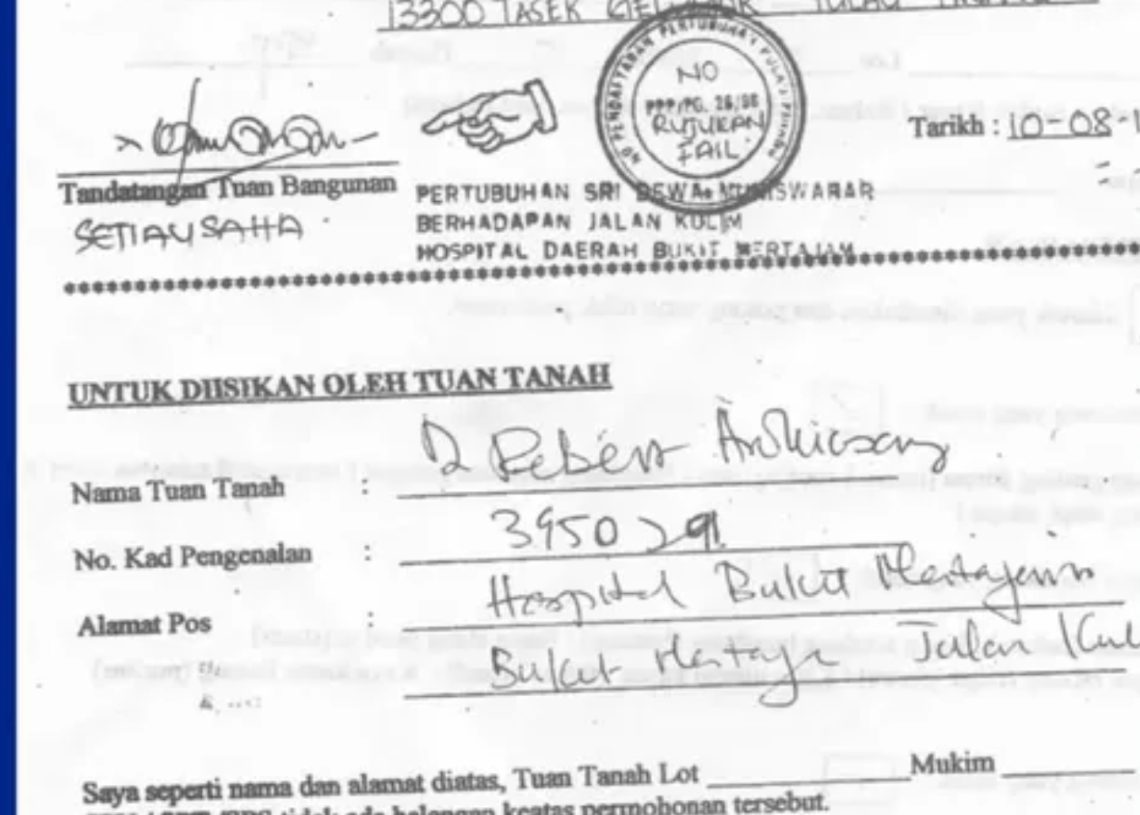 13300 TASEK
NO PENDAFTARAN PERTUBUHAN PULAU PINANG
NO
PPP/PG. 26/98
RUJUKAN
FAIL.
Tarikh : 10-08-1
Tandatangan Tuan Bangunan
SETIAUSAHA
PERTUBUHAN SRI DEWA MUNISWARAR
BERHADAPAN JALAN KULIM
HOSPITAL DAERAH BUKIT MERTAJAM
UNTUK DIISIKAN OLEH TUAN TANAH
Nama Tuan Tanah :
No. Kad Pengenalan : 3950291
Alamat Pos : Hospital Bukit Mertajam
Bukit Mertajam Jalan Kul
Saya seperti nama dan alamat diatas, Tuan Tanah Lot Mukim
tidak ada halangan keatas permohonan tersebut.